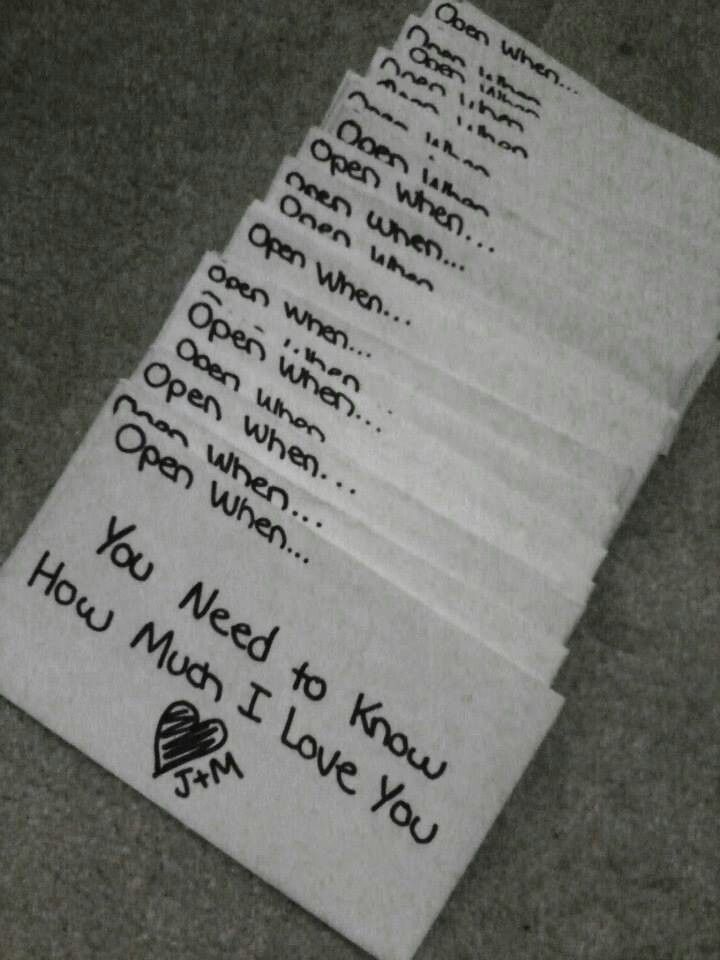 Open When...
Open When
Open When
Open When
Open When
Open When
Open When
Open When...
Open When...
Open When
Open When...
Open When...
Open When
Open When...
Open When
Open When...
Open When...
Open When...
You Need to Know
How Much I Love You
J+M